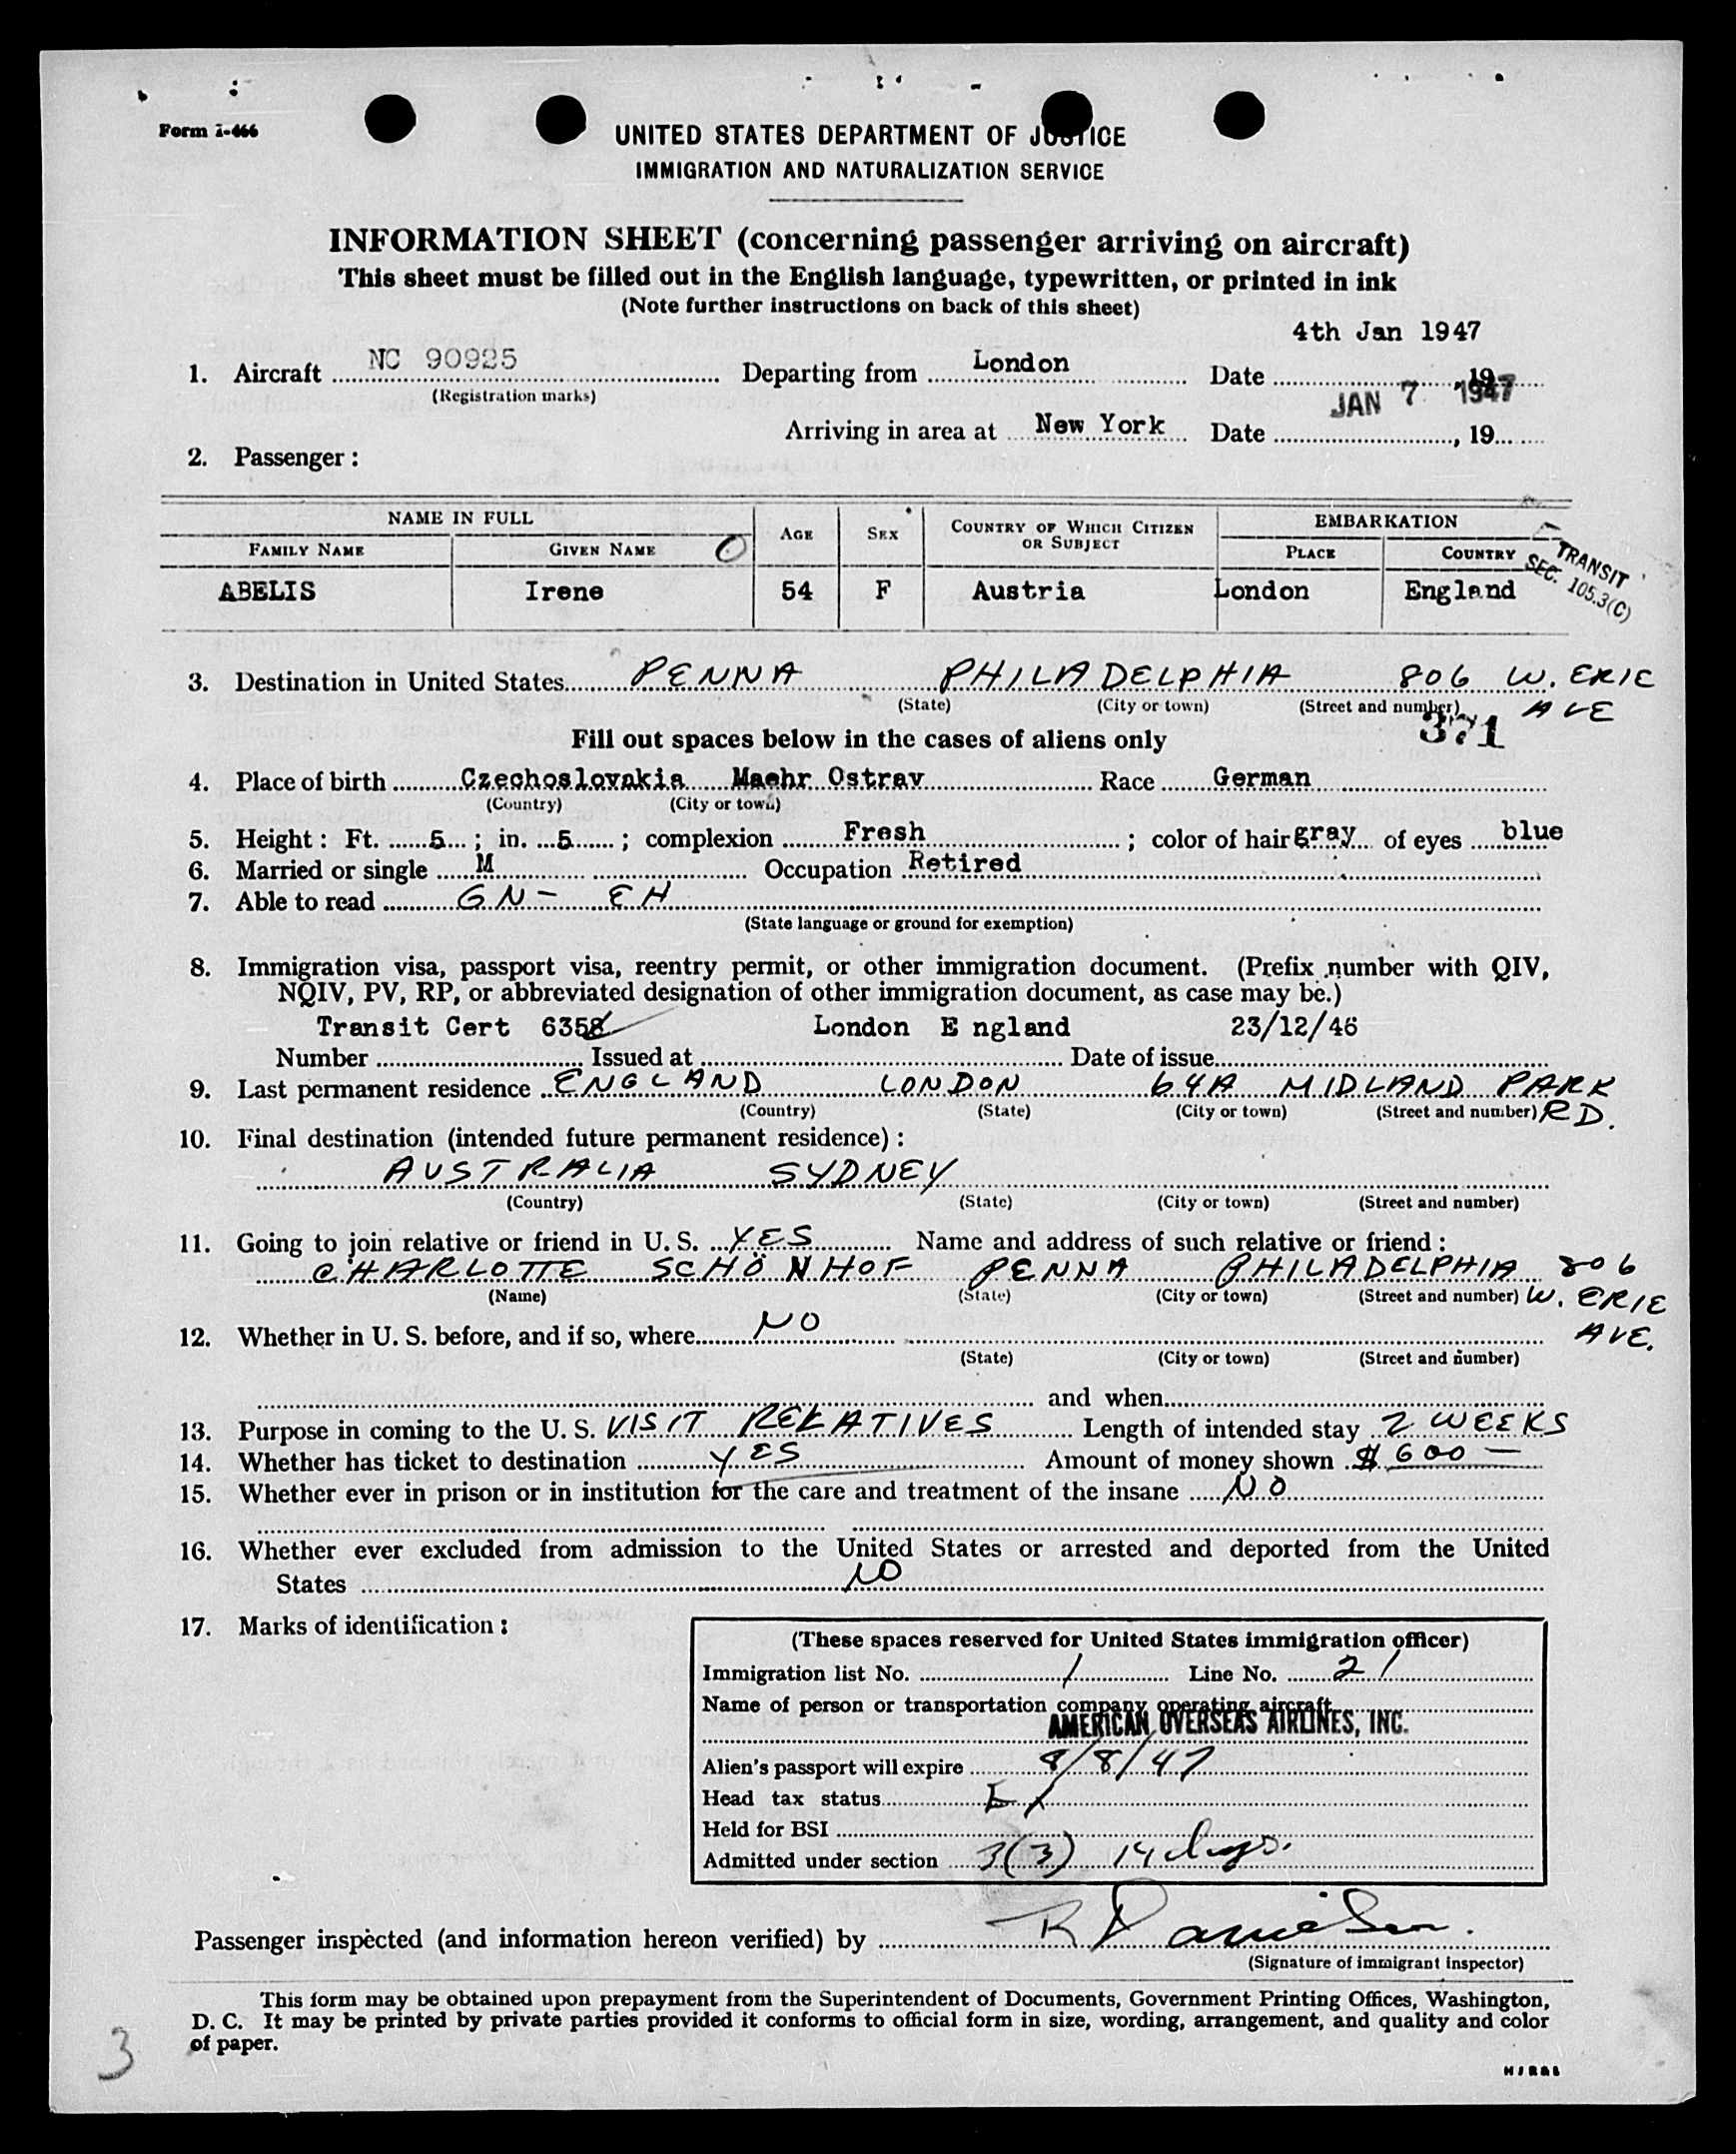 Form I-466
UNITED STATES DEPARTMENT OF JUSTICE
IMMIGRATION AND NATURALIZATION SERVICE
INFORMATION SHEET (concerning passenger arriving on aircraft)
This sheet must be filled out in the English language, typewritten, or printed in ink
(Note further instructions on back of this sheet)
4th Jan 1947
1. Aircraft NC 90925 Departing from London Date , 19
(Registration marks) JAN 7 1947
Arriving in area at New York Date , 19
2. Passenger:
NAME IN FULL AGE SEX COUNTRY OF WHICH CITIZEN OR SUBJECT EMBARKATION
FAMILY NAME GIVEN NAME PLACE COUNTRY
TRANSIT
SEC. 105.3(C)
ABELIS Irene 54 F Austria London England
3. Destination in United States PENNA PHILADELPHIA 806 W. ERIE
(State) (City or town) (Street and number) AVE
371
Fill out spaces below in the cases of aliens only
4. Place of birth Czechoslovakia Maehr Ostrav Race German
(Country) (City or town)
5. Height: Ft. 5 ; in. 5 ; complexion Fresh ; color of hair gray of eyes blue
6. Married or single M Occupation Retired
7. Able to read GN - EH
(State language or ground for exemption)
8. Immigration visa, passport visa, reentry permit, or other immigration document. (Prefix number with QIV,
NQIV, PV, RP, or abbreviated designation of other immigration document, as case may be.)
Transit Cert 6358 London E ngland 23/12/46
Number Issued at Date of issue
9. Last permanent residence ENGLAND LONDON 64A MIDLAND PARK
(Country) (State) (City or town) (Street and number) RD.
10. Final destination (intended future permanent residence):
AUSTRALIA SYDNEY
(Country) (State) (City or town) (Street and number)
11. Going to join relative or friend in U. S. YES Name and address of such relative or friend:
CHARLOTTE SCHÖNHOF PENNA PHILADELPHIA 806
(Name) (State) (City or town) (Street and number) W. ERIE
12. Whether in U. S. before, and if so, where NO AVE.
(State) (City or town) (Street and number)
and when
13. Purpose in coming to the U. S. VISIT RELATIVES Length of intended stay 2 WEEKS
14. Whether has ticket to destination YES Amount of money shown $ 600 —
15. Whether ever in prison or in institution for the care and treatment of the insane NO
16. Whether ever excluded from admission to the United States or arrested and deported from the United
States NO
17. Marks of identification:
(These spaces reserved for United States immigration officer)
Immigration list No. 1 Line No. 21
Name of person or transportation company operating aircraft
AMERICAN OVERSEAS AIRLINES, INC.
Alien's passport will expire 8/8/47
Head tax status
Held for BSI
Admitted under section 3(3) 14 days.
Passenger inspected (and information hereon verified) by
(Signature of immigrant inspector)
This form may be obtained upon prepayment from the Superintendent of Documents, Government Printing Offices, Washington,
D. C. It may be printed by private parties provided it conforms to official form in size, wording, arrangement, and quality and color
of paper.
3